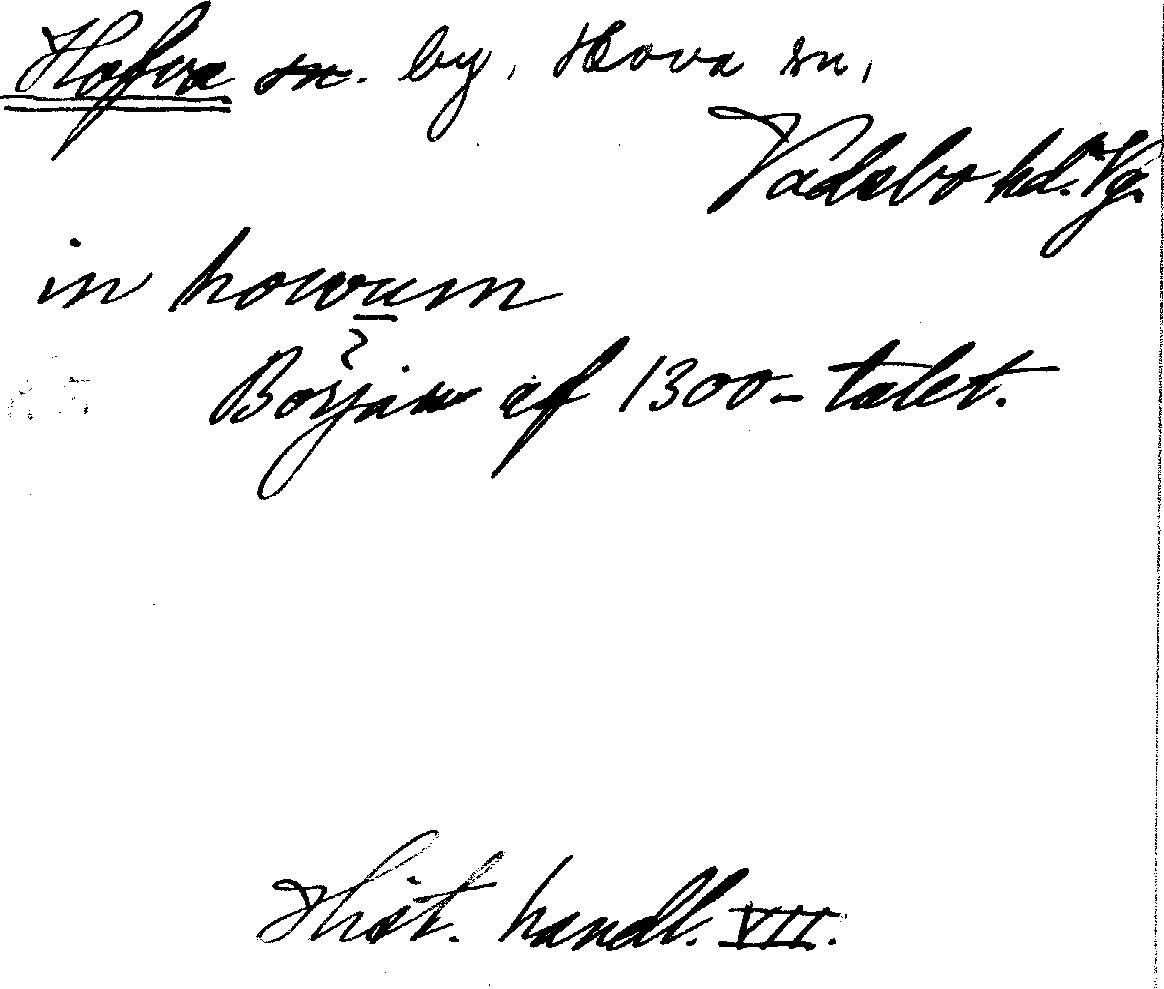 Hofva sn. by, Hova sn,
Vadsbo hd. Vg.
in howum
Början af 1300-talet.
Hist. handl. VII.